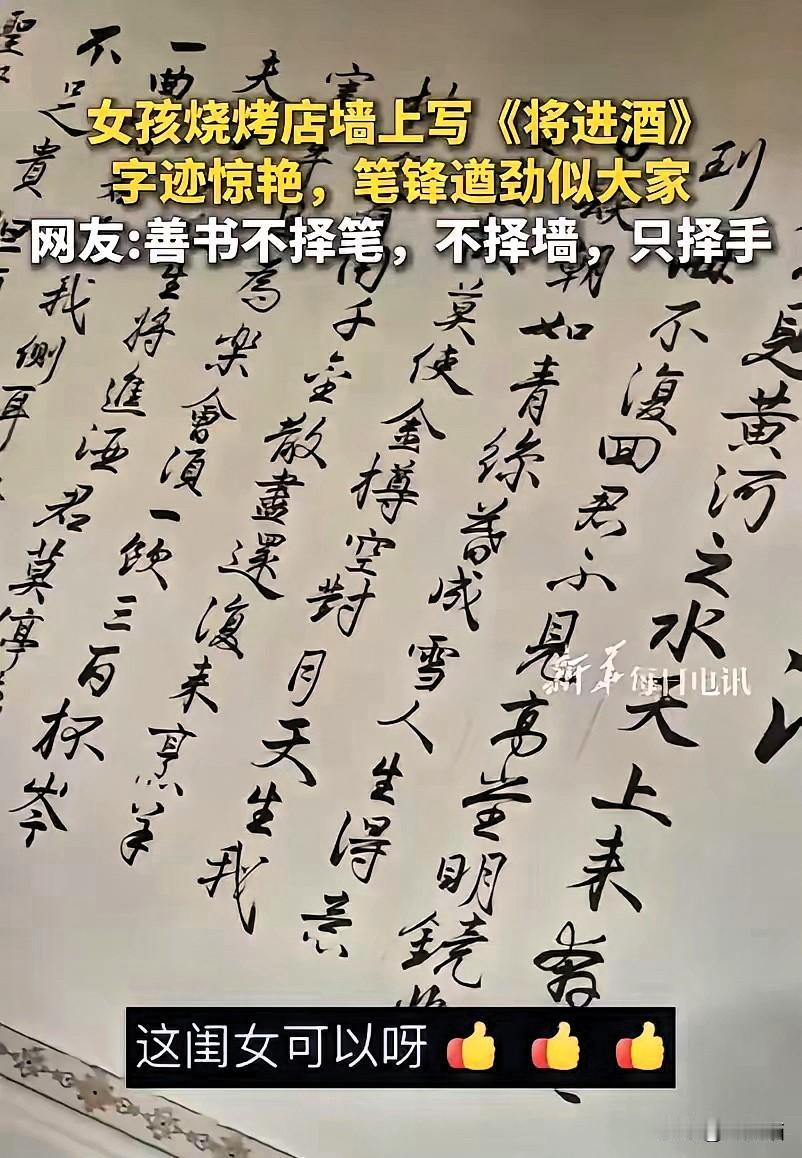 女孩烧烤店墙上写《将进酒》
字迹惊艳，笔锋遒劲似大家
网友:善书不择笔，不择墙，只择手
見黃河之水天上来奔
到海不復回君不見高堂明鏡
朝如青絲暮成雪人生得意
莫使金樽空對月天生我
用千金散盡還復来烹羊
為樂會須一飲三百杯岑
夫 生將進酒君莫停
一曲 我側耳
不足貴
新华每日电讯
这闺女可以呀👍👍👍